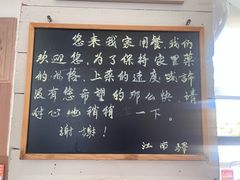 您来我家用餐,我们
欢迎您,为了保持家里菜
的价格,上菜的速度或许
没有您希望的那么快,请
耐心地稍稍一下。
谢谢!
江南驿